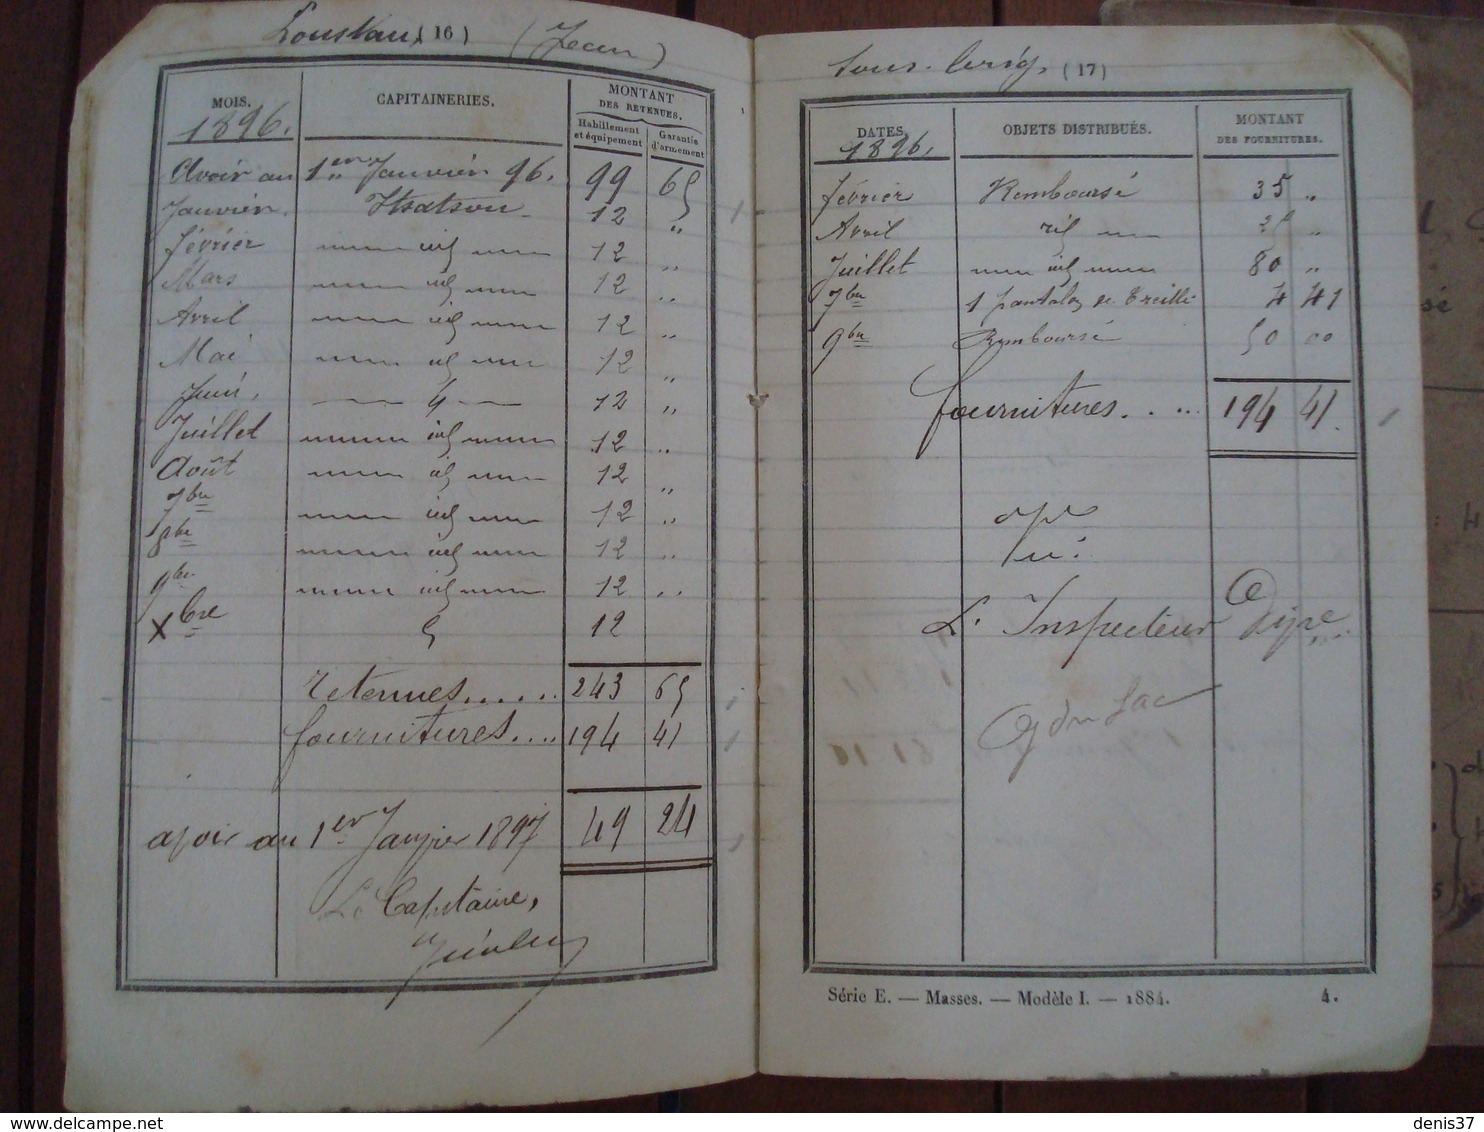 Loustau (16) (Jean)
MOIS. CAPITAINERIES. MONTANT DES RETENUES.
1896. Habillement et équipement Garantie d'armement
Avoir au 1er Janvier 96. 99 65
Janvier. Itsatsou 12 "
Février id 12 "
Mars id 12 "
Avril id 12 "
Mai id 12 "
Juin. 12 "
Juillet id 12 "
Août id 12 "
7bre id 12 "
8bre id 12 "
9bre id 12 "
Xbre 12
retenues...... 243 65
fournitures.... 194 41
avoir au 1er Janvier 1897 49 24
Le Capitaine,
sous-brig. (17)
DATES OBJETS DISTRIBUÉS. MONTANT DES FOURNITURES.
1896.
Février Remboursé 35 "
Avril id 25 "
Juillet id 80 "
7bre 1 pantalon de treillis 4 41
9bre Remboursé 50 00
fournitures..... 194 41.
Vu:
L'Inspecteur
Série E. — Masses. — Modèle I. — 1884. 4.
denis37